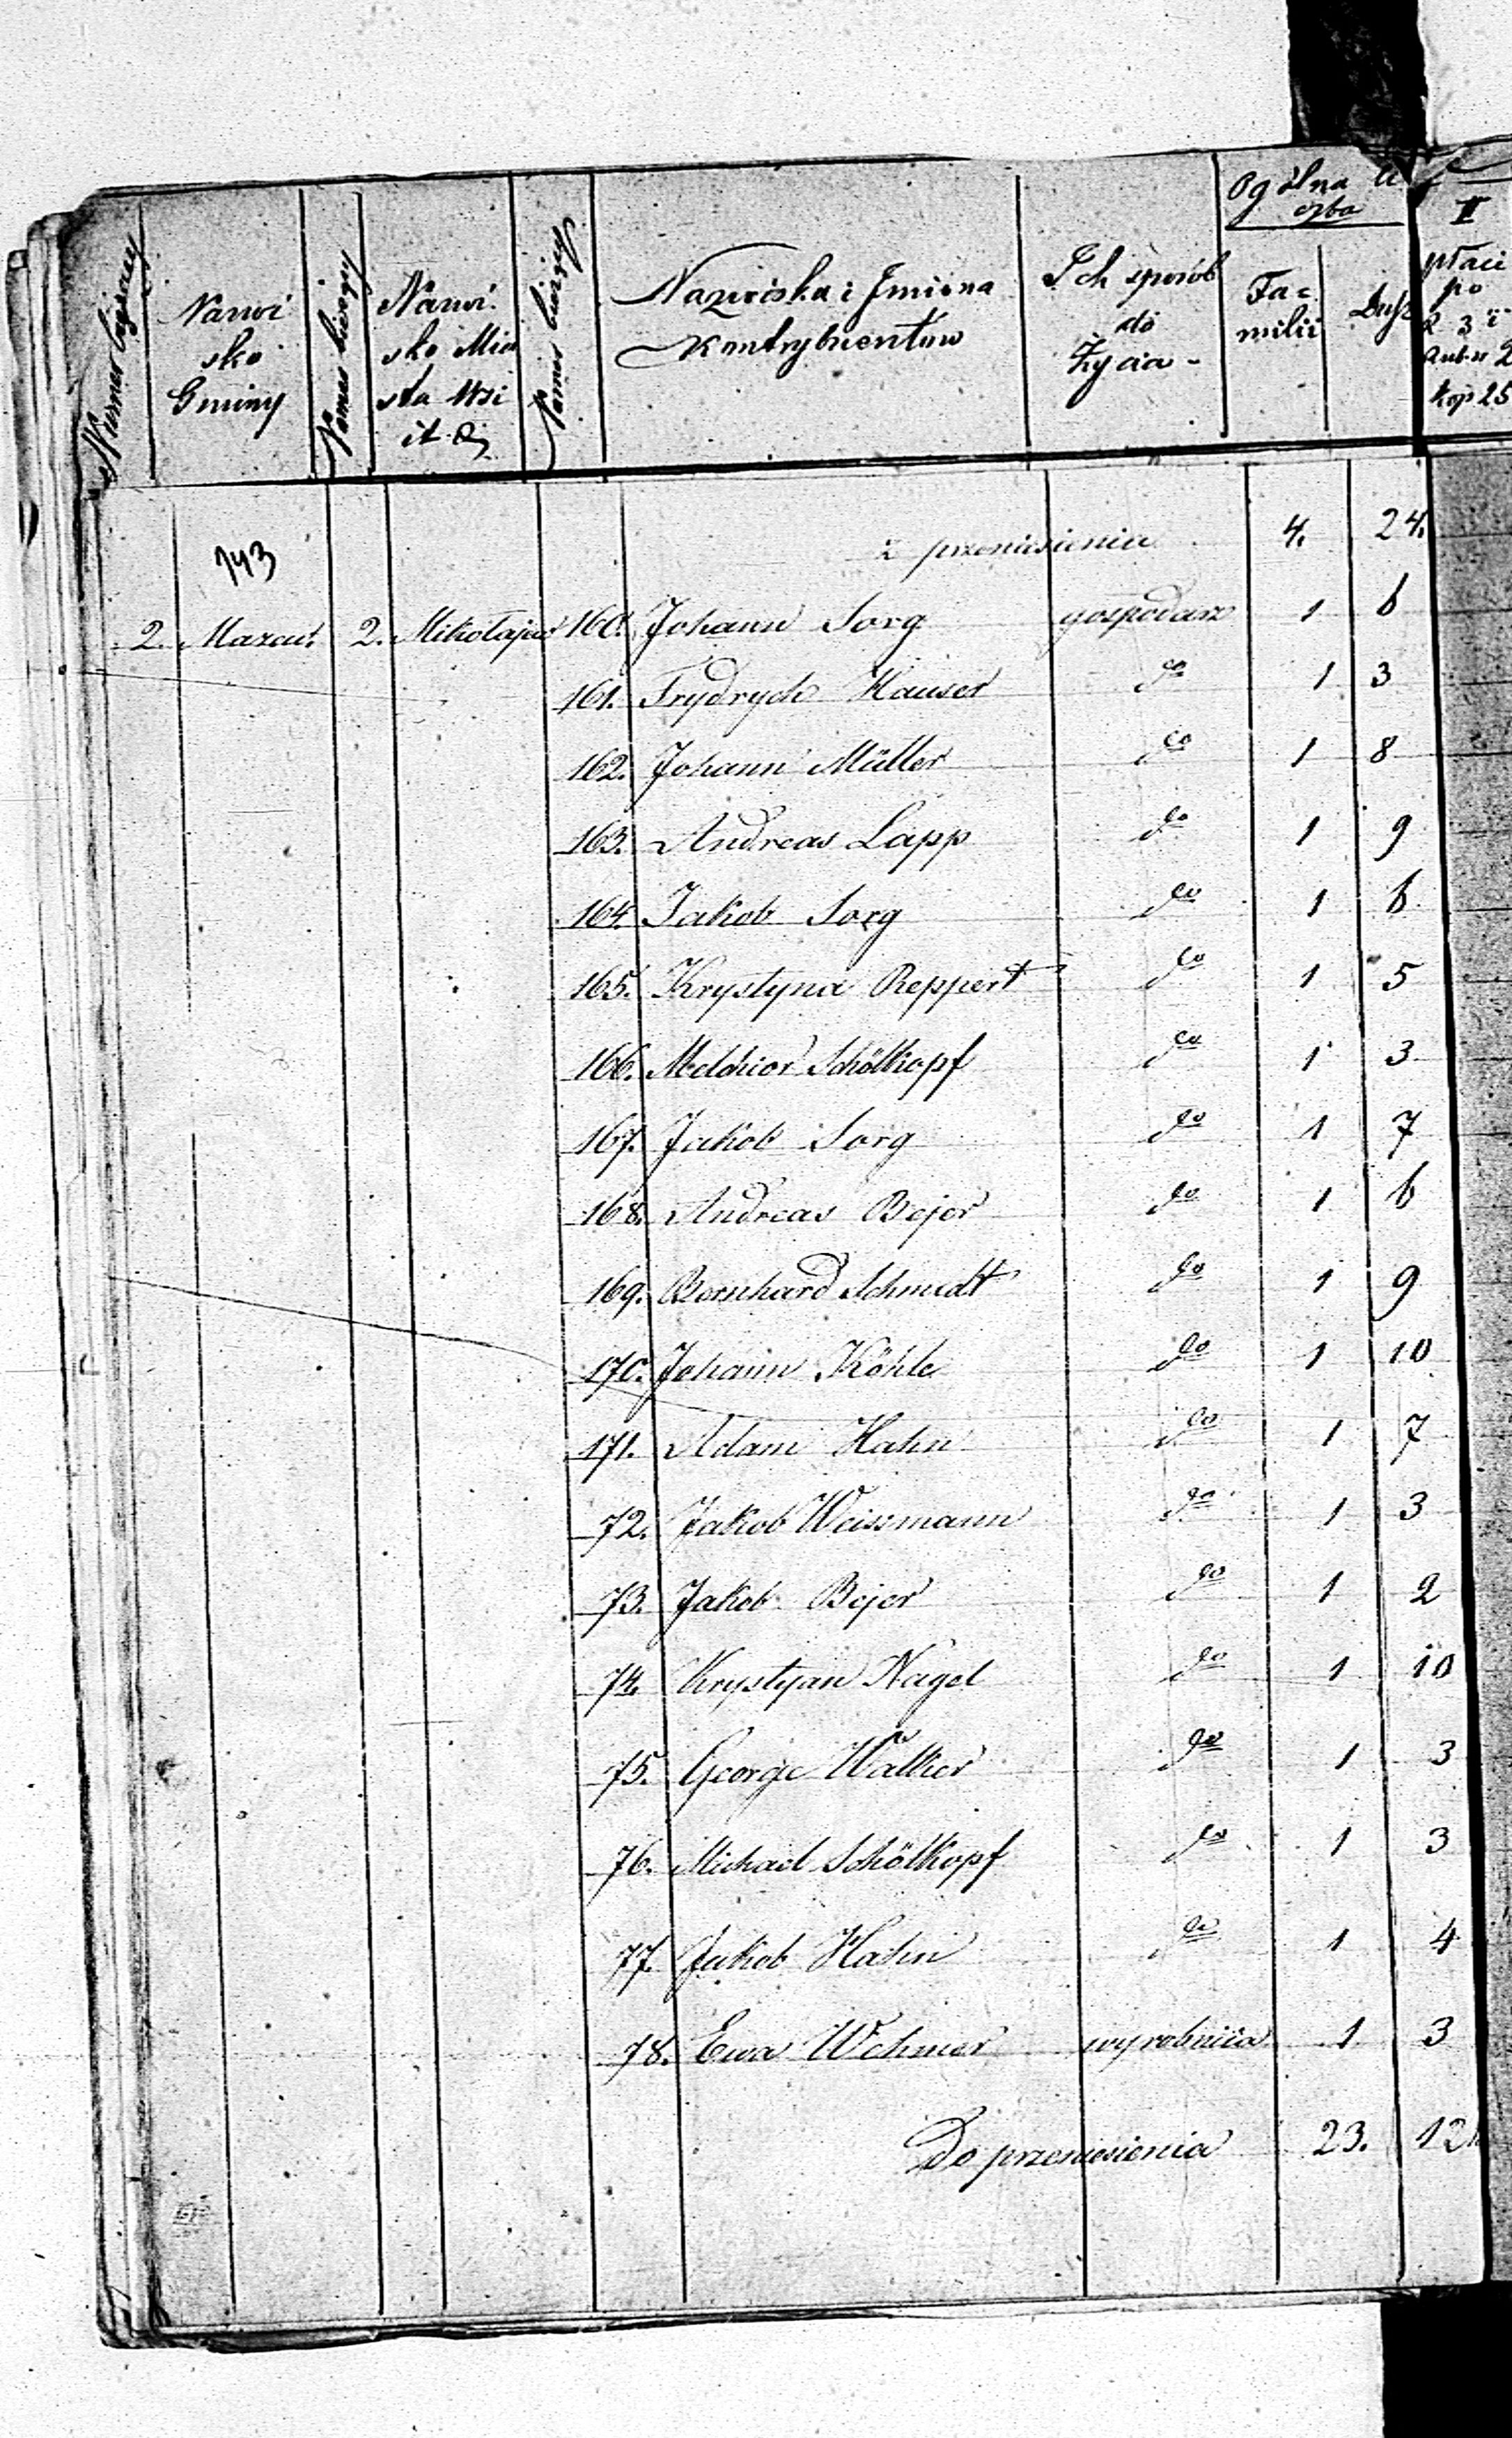 Numer bieżący
Nazwi
sko
Gminy
Numer bieżący
Nazwi
sko Mia
sta Wsi
it D.
Numer bieżący
Nazwiska i Jmiona
Kontrybuentow
Ich sposób
do
Życia -
Ogólna li
czba
Fa=
milii
Dusz
II
płaci
po
R 3 i
Kop 25
z przeniesienia 4. 24.
143
2. Mazew. 2. Mikołajew 160. Johann Sorg gospodarz 1 6
161. Frydrych Hauser do 1 3
162. Johann Müller do 1 8
163. Andreas Lapp do 1 9
164. Jakob Sorg do 1 6
165. Krystyna Reppert do 1 5
166. Melchior Schölkopf do 1 3
167. Jakob Sorg do 1 7
168. Andreas Bejer do 1 6
169. Bernhard Schmidt do 1 9
170. Johann Köhle do 1 10
171. Adam Hahn do 1 7
72. Jakob Weissmann do 1 3
73. Jakob Bejer do 1 2
74. Krystyan Nagel do 1 10
75. George Walker do 1 3
76. Michael Schölkopf do 1 3
77. Jakob Hahn do 1 4
78. Ewa Wehmer wyrobnica 1 3
Do przeniesienia 23. 12